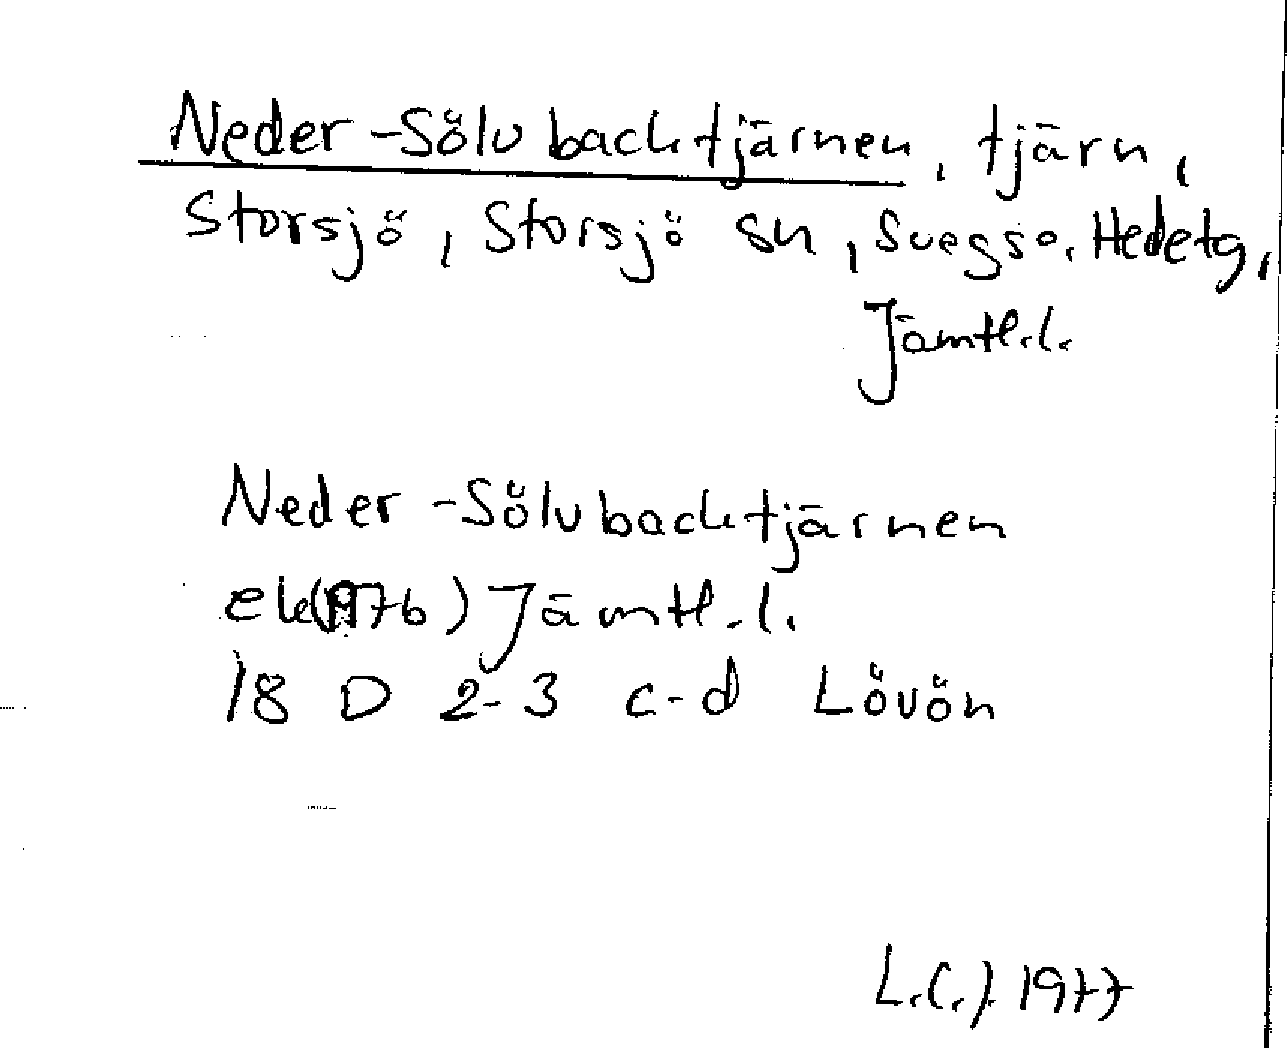 Neder-Sölvbacktjärnen, tjärn,
Storsjö, Storsjö sn, Svegs so. Hedetg,
Jämtl.l.
Neder-Sölvbacktjärnen
ek(1976) Jämtl.l.
18 D 2-3 c-d Lövön
L.C.J. 1977